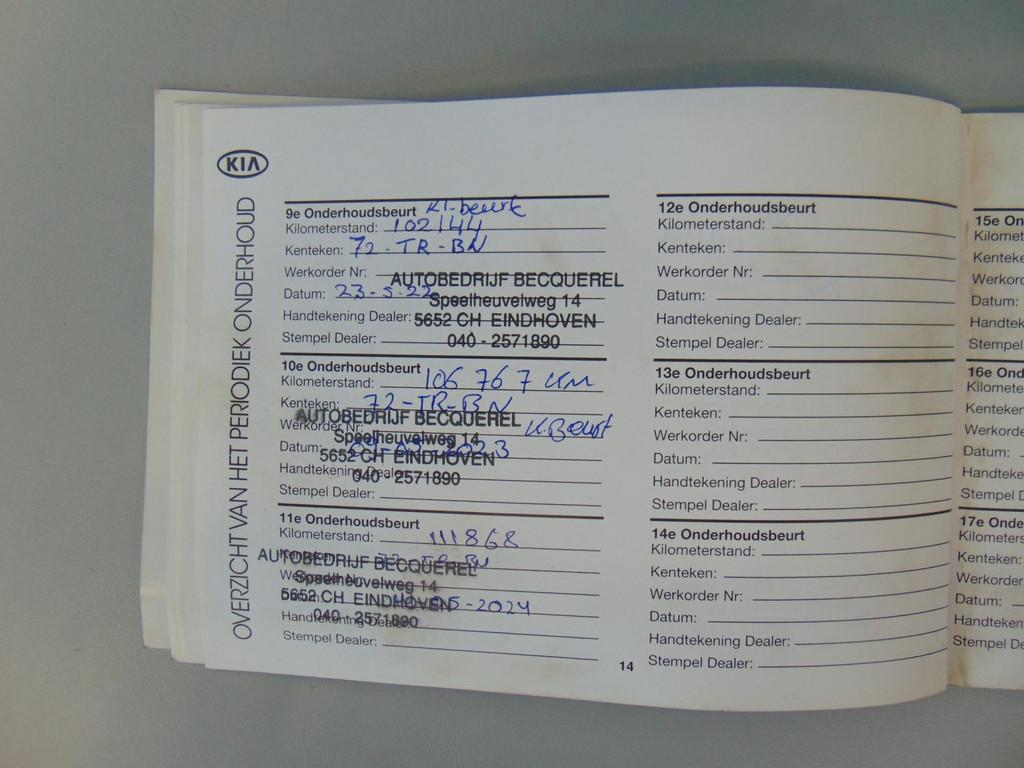 KIA
OVERZICHT VAN HET PERIODIEK ONDERHOUD
9e Onderhoudsbeurt Kl-beurt
Kilometerstand: 102144
Kenteken: 72-TR-BN
Werkorder Nr:
Datum: 23-5-22
Handtekening Dealer:
Stempel Dealer:
AUTOBEDRIJF BECQUEREL
Speelheuvelweg 14
5652 CH EINDHOVEN
040 - 2571890
10e Onderhoudsbeurt
Kilometerstand: 106 767 km
Kenteken: 72-TR-BN
Werkorder Nr: K.Beurt
Datum: 2023
Handtekening Dealer:
Stempel Dealer:
AUTOBEDRIJF BECQUEREL
Speelheuvelweg 14
5652 CH EINDHOVEN
040 - 2571890
11e Onderhoudsbeurt
Kilometerstand: 111868
Kenteken: 72-TR-BN
Werkorder Nr:
Datum: 05-2024
Handtekening Dealer:
Stempel Dealer:
AUTOBEDRIJF BECQUEREL
Speelheuvelweg 14
5652 CH EINDHOVEN
040 - 2571890
14
12e Onderhoudsbeurt
Kilometerstand:
Kenteken:
Werkorder Nr:
Datum:
Handtekening Dealer:
Stempel Dealer:
13e Onderhoudsbeurt
Kilometerstand:
Kenteken:
Werkorder Nr:
Datum:
Handtekening Dealer:
Stempel Dealer:
14e Onderhoudsbeurt
Kilometerstand:
Kenteken:
Werkorder Nr:
Datum:
Handtekening Dealer:
Stempel Dealer:
15e On
Kilomet
Kenteke
Werkor
Datum:
Handtek
Stempel
16e On
Kilomete
Kenteken
Werkorde
Datum:
Handteke
Stempel D
17e Onde
Kilometers
Kenteken:
Werkorder
Datum:
Handteken
Stempel De